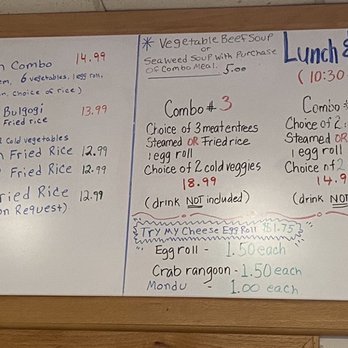 n Combo 14.99
em, 6 vegetables, 1 egg roll,
choice of rice)
Bulgogi 13.99
Fried rice
Cold vegetables
Fried Rice 12.99
Fried Rice 12.99
Fried Rice 12.99
on Request)
* Vegetable Beef Soup
or
Seaweed Soup with Purchase
Of Combo Meal. 5.00
Combo # 3
Choice of 3 meat entrees
Steamed OR Fried rice
1 egg roll
Choice of 2 cold veggies
18.99
(drink NOT included)
Try My Cheese Egg Roll $1.75
Egg roll - 1.50 each
Crab rangoon - 1.50 each
Mondu - 1.00 each
Lunch
(10:30
Combo
Choice of 2
Steamed OR
1 egg roll
Choice of 2
14.9
(drink NOT